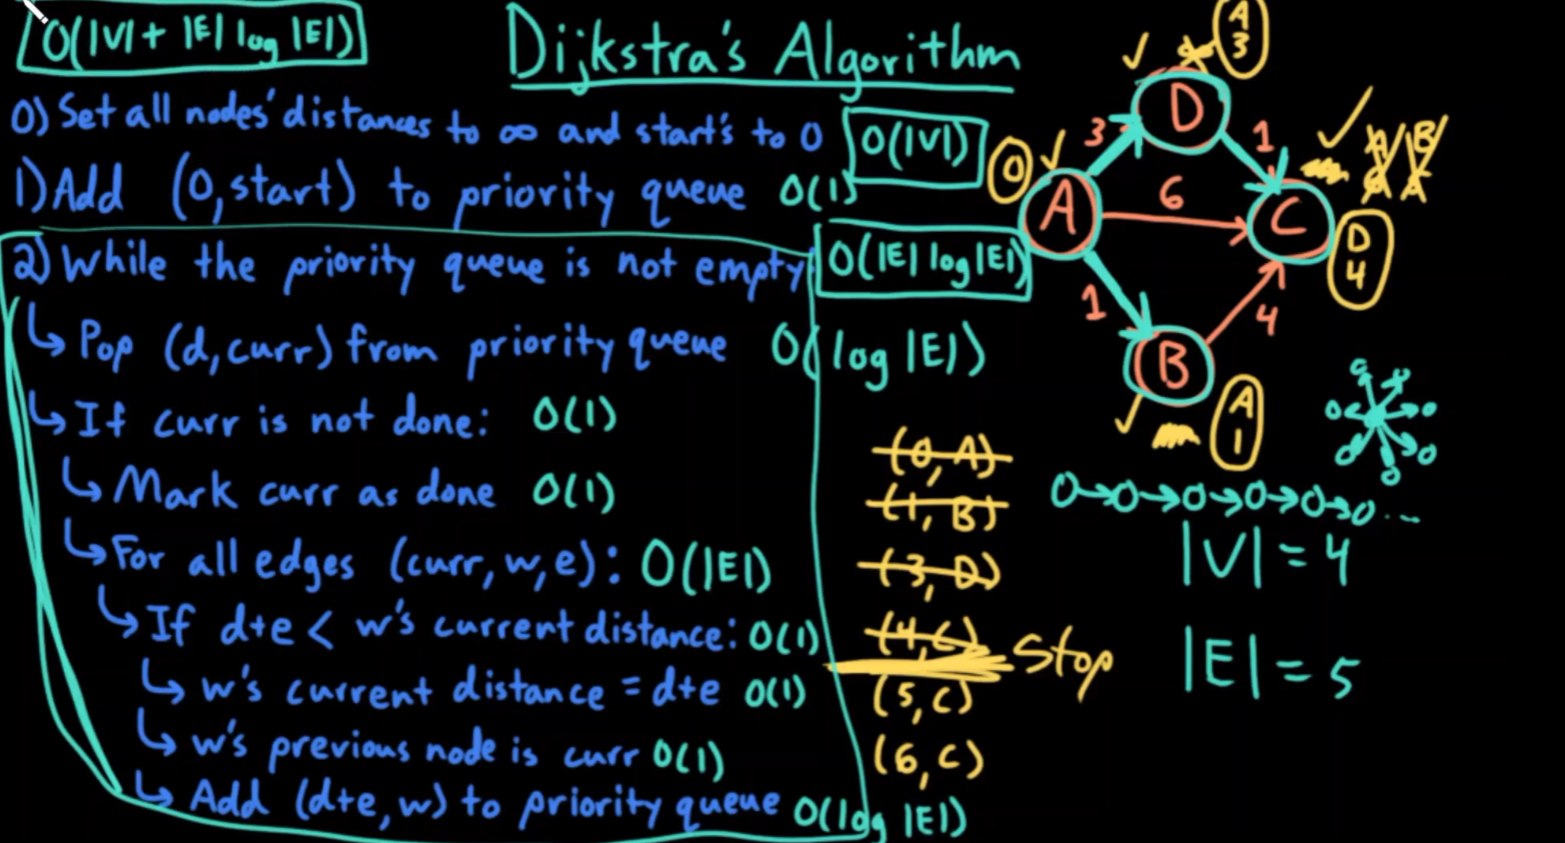 O(|V| + |E| log |E|)
Dijkstra's Algorithm
0) Set all nodes' distances to ∞ and start's to 0
O(|V|)
1) Add (0, start) to priority queue O(1)
2) While the priority queue is not empty
O(|E| log |E|)
↳ Pop (d, curr) from priority queue O(log |E|)
↳ If curr is not done: O(1)
↳ Mark curr as done O(1)
↳ For all edges (curr, w, e): O(|E|)
↳ If d+e < w's current distance: O(1)
↳ w's current distance = d+e O(1)
↳ w's previous node is curr O(1)
↳ Add (d+e, w) to priority queue O(log |E|)
A
3
D
3
1
0
A
6
C
A
B
D
4
1
4
B
A
1
(0, A)
(1, B)
(3, D)
(4, C)
Stop
(5, C)
(6, C)
|V| = 4
|E| = 5